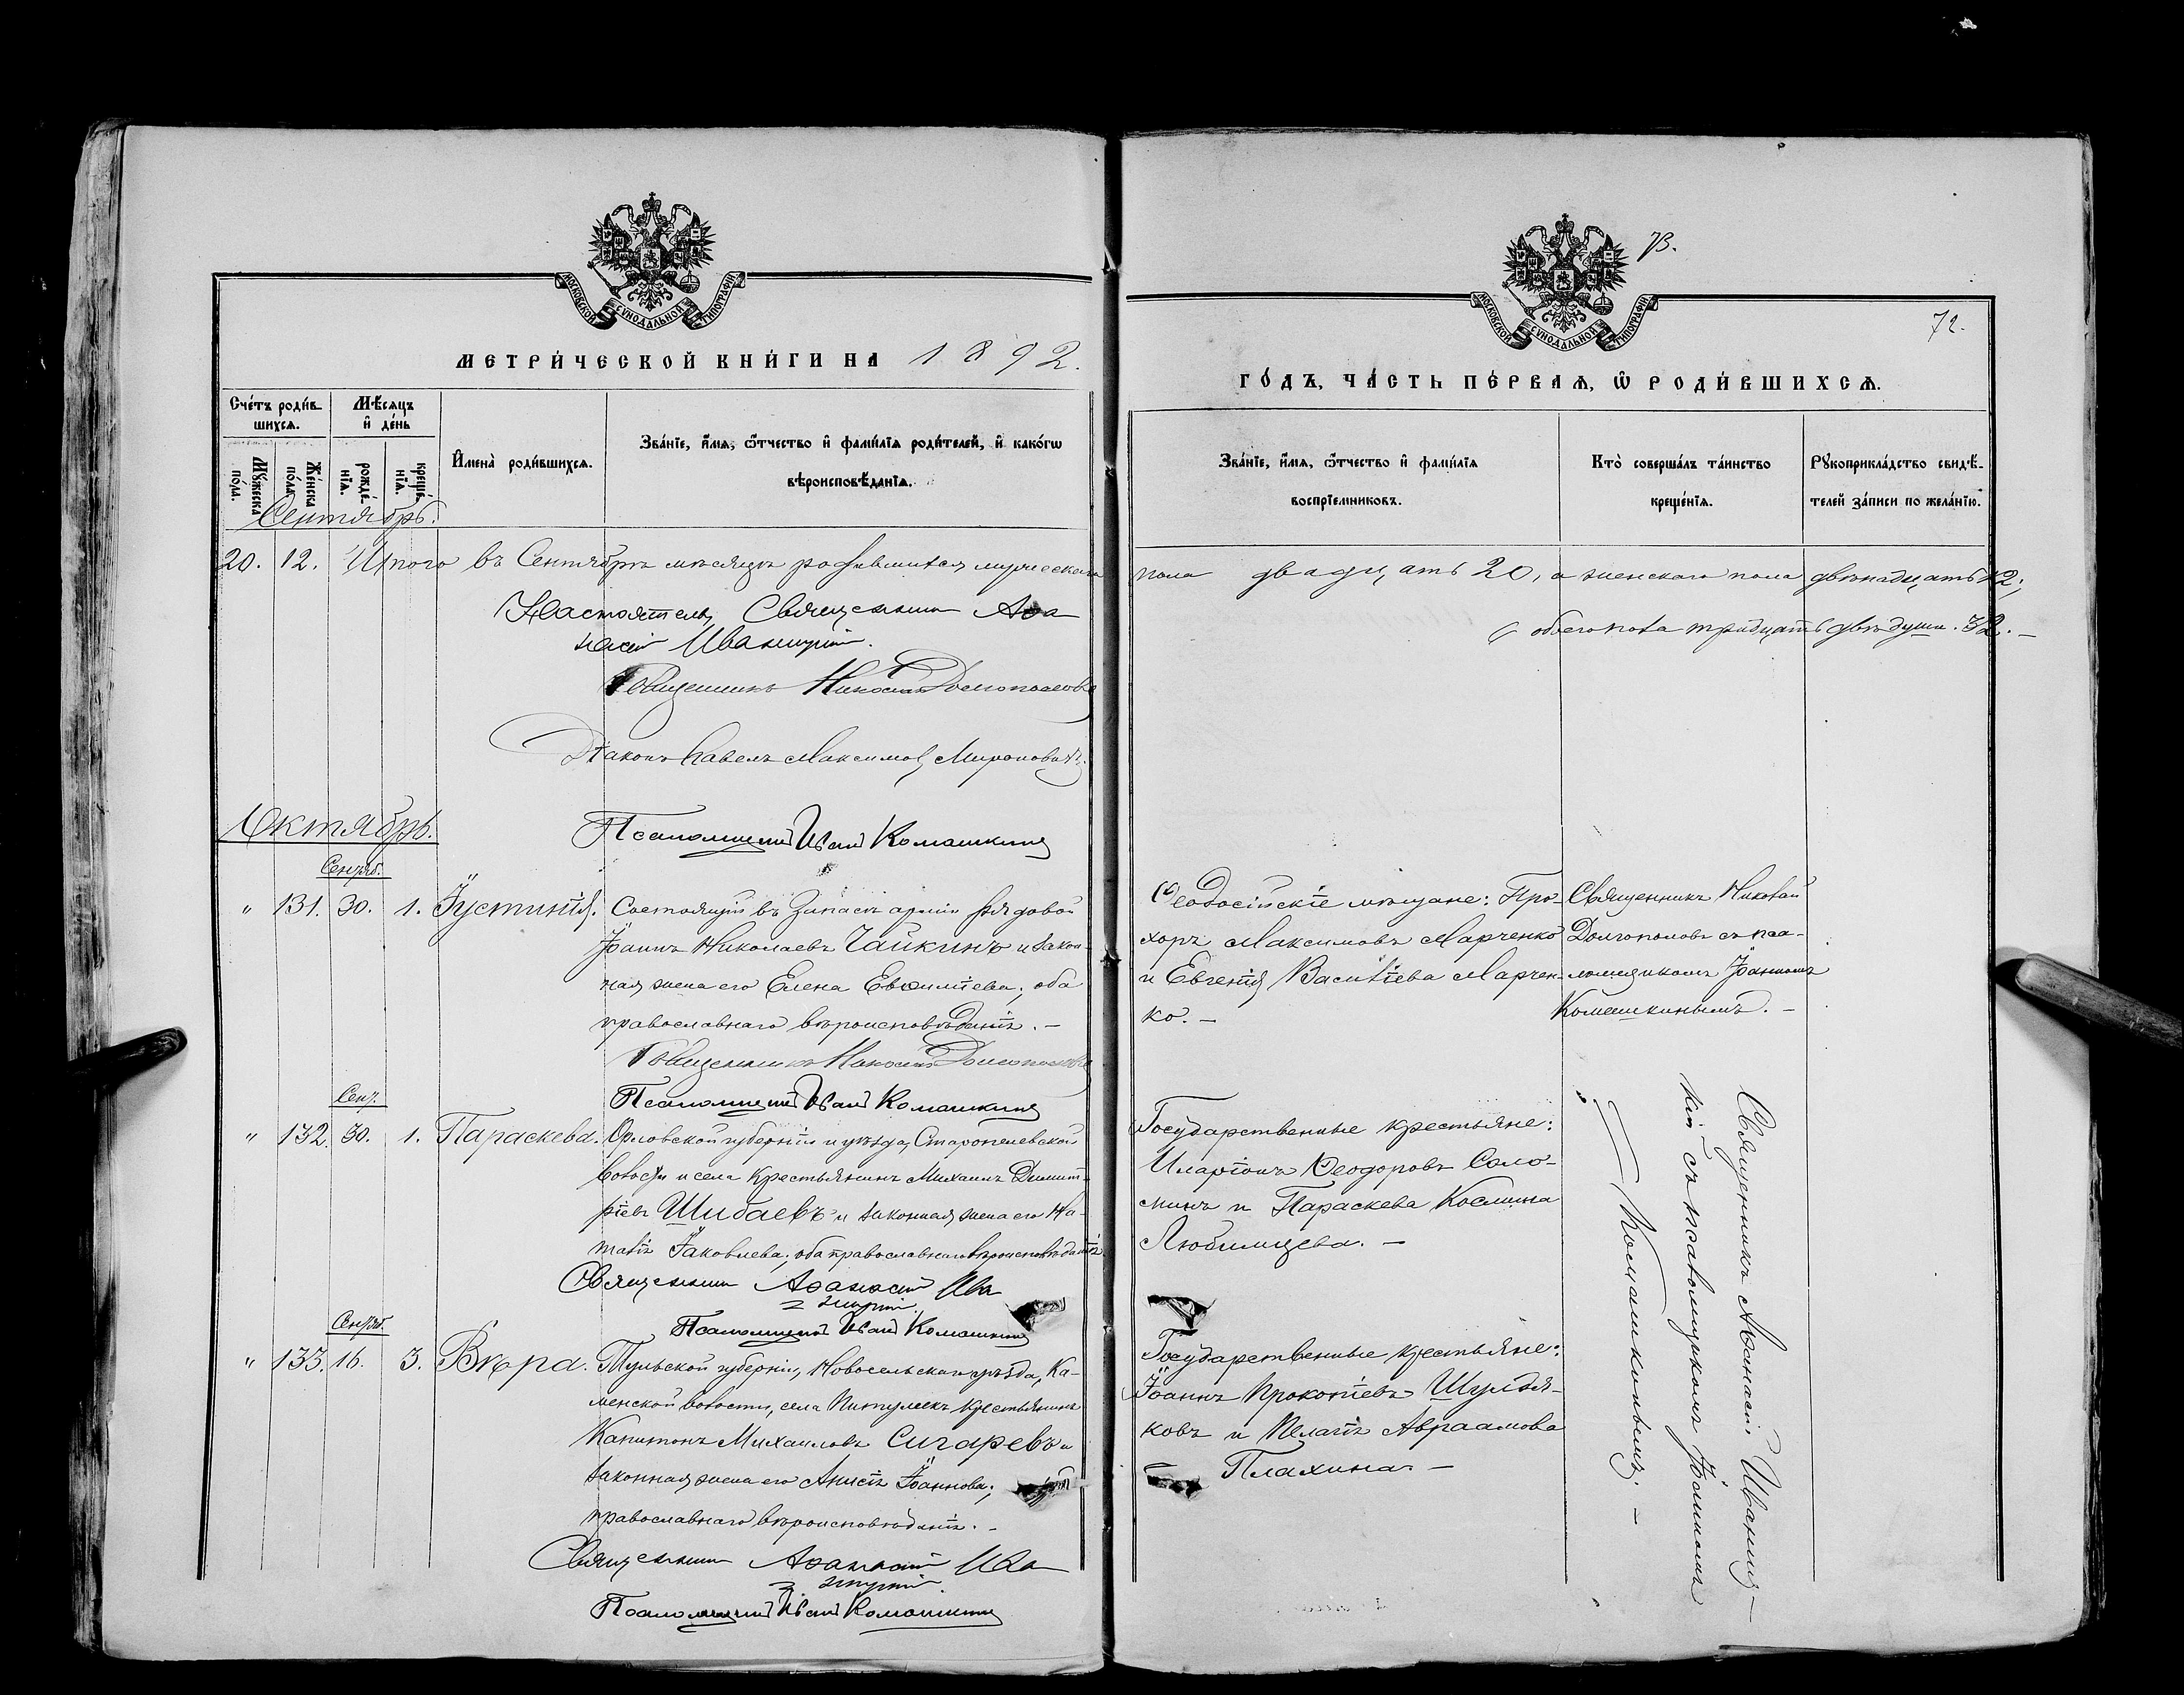 МОСКОВСКОЙ СѴНОДАЛЬНОЙ ТИПОГРАФІИ
МЕТРИ́ЧЕСКОЙ КНИ́ГИ НА 1892.
Сче́тъ роди́в-
шихсѧ.
Мѣ́сѧцъ
и҆ де́нь
Мꙋ́жеска
по́ла.
Же́нска
по́ла.
рожде́-
нїѧ.
креще́-
нїѧ.
И҆мена̀ роди́вшихсѧ.
Зва́нїе, и҆́мѧ, ѻ҆́тчество и҆ фами́лїѧ роди́телей, и҆ како́гѡ
вѣроисповѣ́данїѧ.
Сентябрь.
20. 12. Итого въ Сентябрѣ мѣсяцѣ родившихся мужескаго
Настоятель, Священникъ Аѳа-
насій Иваницкій.
Священникъ Николай Долгополовъ
Діаконъ Павелъ Максимовъ Мироновичъ.
Псаломщикъ Иванъ Комашкинъ
Октябрь.
Сентяб.
" 131. 30. 1. Іустинія. Состоящій въ Запасѣ арміи рядовой
Іоаннъ Николаевъ Чайкинъ и закон-
ная жена его Елена Евѳиміева, оба
православнаго вѣроисповѣданія. —
Священникъ Николай Долгополовъ
Псаломщикъ Иванъ Комашкинъ
Сент.
" 132. 30. 1. Параскева. Орловской губерніи и уѣзда, Старопелевской
волости и села крестьянинъ Михаилъ Димит-
ріевъ Шибаевъ и законная жена его На-
талія Іаковлева, оба православнаго вѣроисповѣданія.
Священникъ Аѳанасій Ива-
ницкій.
Псаломщикъ Иванъ Комашкинъ
Сентяб.
" 133. 16. 3. Вѣра. Тульской губерніи, Новосельскаго уѣзда, Ка-
менской волости, села крестьянинъ
Капитонъ Михаиловъ Сигаревъ и
законная жена его Анисія Іоаннова;
православнаго вѣроисповѣданія. —
Священникъ Аѳанасій Ива-
ницкій.
Псаломщикъ Иванъ Комашкинъ
73.
МОСКОВСКОЙ СѴНОДАЛЬНОЙ ТИПОГРАФІИ
72.
ГО́ДЪ, ЧА́СТЬ ПЕ́РВАѦ, Ѡ҆ РОДИ́ВШИХСѦ.
Зва́нїе, и҆́мѧ, ѻ҆́тчество и҆ фами́лїѧ
воспрїе́мниковъ.
Кто̀ соверша́лъ та́инство
креще́нїѧ.
Рꙋкоприкла́дство свидѣ́-
телей за́писи по жела́нїю.
пола двадцать 20, а женскаго пола двѣнадцать 12;
обоего пола тридцать двѣ души. 32. —
Ѳеодосійскіе мѣщане: Про-
хоръ Максимовъ Марченко
и Евгенія Василіева Марчен-
ко. —
Священникъ Николай
Долгополовъ съ пса-
ломщикомъ Іоанномъ
Комашкинымъ. —
Государственные крестьяне:
Иларіонъ Ѳеодоровъ Соло-
минъ и Параскева Космина
Любимцева. —
Священникъ Аѳанасій Иваниц-
кій съ псаломщикомъ Іоанномъ
Комашкинымъ. —
Государственные крестьяне:
Іоаннъ Прокопіевъ Шулья-
ковъ и Пелагія Авраамова
Плахина. —